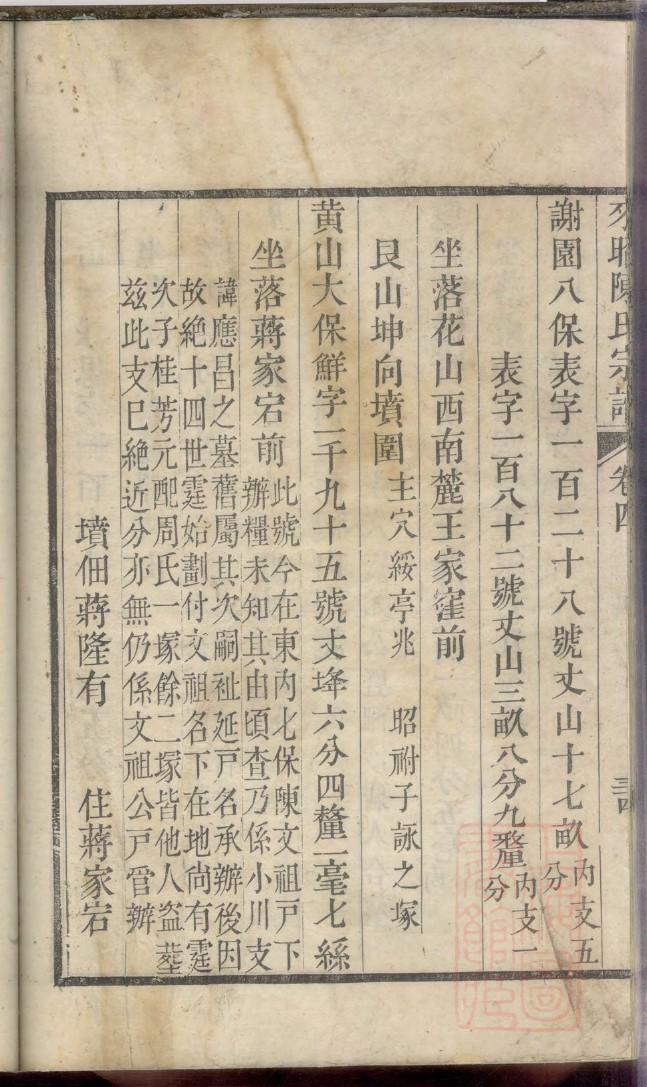 陳氏宗譜 卷四
謝園八保表字一百二十八號丈山十七畝內支五分
表字一百八十二號丈山三畝八分九釐內支一分
坐落花山西南麓王家窪前
艮山坤向墳圍 主穴綏亭兆 昭祔子詠之塚
黄山大保鮮字一千九十五號丈埄六分四釐一毫七絲
坐落蔣家宕前
此號今在東內七保陳文祖戸下
辦糧未知其由頃查乃係小川支
諱應昌之墓舊屬其次嗣祉延戸名承辦後因
故絶十四世霆始劃付文祖名下在地尚有霆
次子桂芳元配周氏一塚餘二塚皆他人盜塟
玆此支巳絶近分亦無仍係文祖公戸管辦
墳佃蔣隆有 住蔣家宕